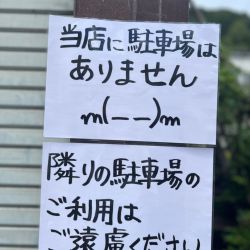 当店に駐車場は
ありません
m(__)m
隣りの駐車場の
ご利用は
ご遠慮ください